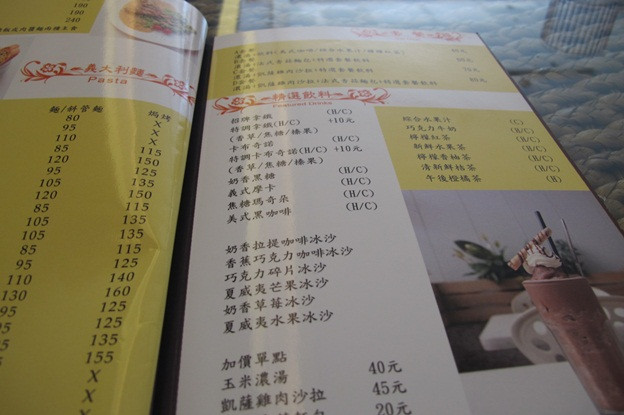 180
180
240
義大利麵
Pasta
麵/斜管麵 焗烤
80 X
95 X
110 X
85 115
120 150
105 135
120 150
85 115
105 135
85 115
95 125
110 140
130 160
95 125
105 135
125 155
X
X
精選飲料
Featured Drinks
招牌拿鐵 (H/C)
特調拿鐵(H/C) +10元
(香草/焦糖/榛果)
卡布奇諾 (H/C)
特調卡布奇諾(H/C) +10元
(香草/焦糖/榛果)
奶香黑糖 (H/C)
義式摩卡 (H/C)
焦糖瑪奇朵 (H/C)
美式黑咖啡 (H/C)
奶香拉提咖啡冰沙
香蕉巧克力咖啡冰沙
巧克力碎片冰沙
夏威夷芒果冰沙
奶香草莓冰沙
夏威夷水果冰沙
加價單點
玉米濃湯 40元
凱薩雞肉沙拉 45元
20元
綜合水果汁 (C)
巧克力牛奶 (H/C)
檸檬紅茶 (H/C)
新鮮水果茶 (H/C)
檸檬香柚茶 (H/C)
清新鮮桔茶 (H/C)
午後橙橘茶 (H)